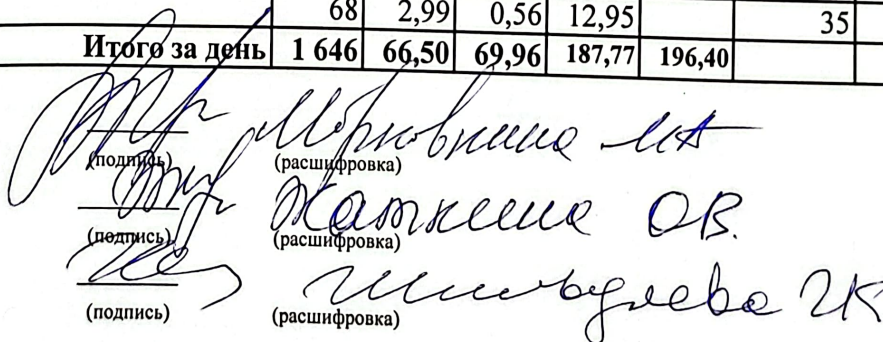 68 2,99 0,56 12,95 35
Итого за день 1 646 66,50 69,96 187,77 196,40
МА
(подпись) (расшифровка)
Жаткина ОВ.
(подпись) (расшифровка)
ГК
(подпись) (расшифровка)